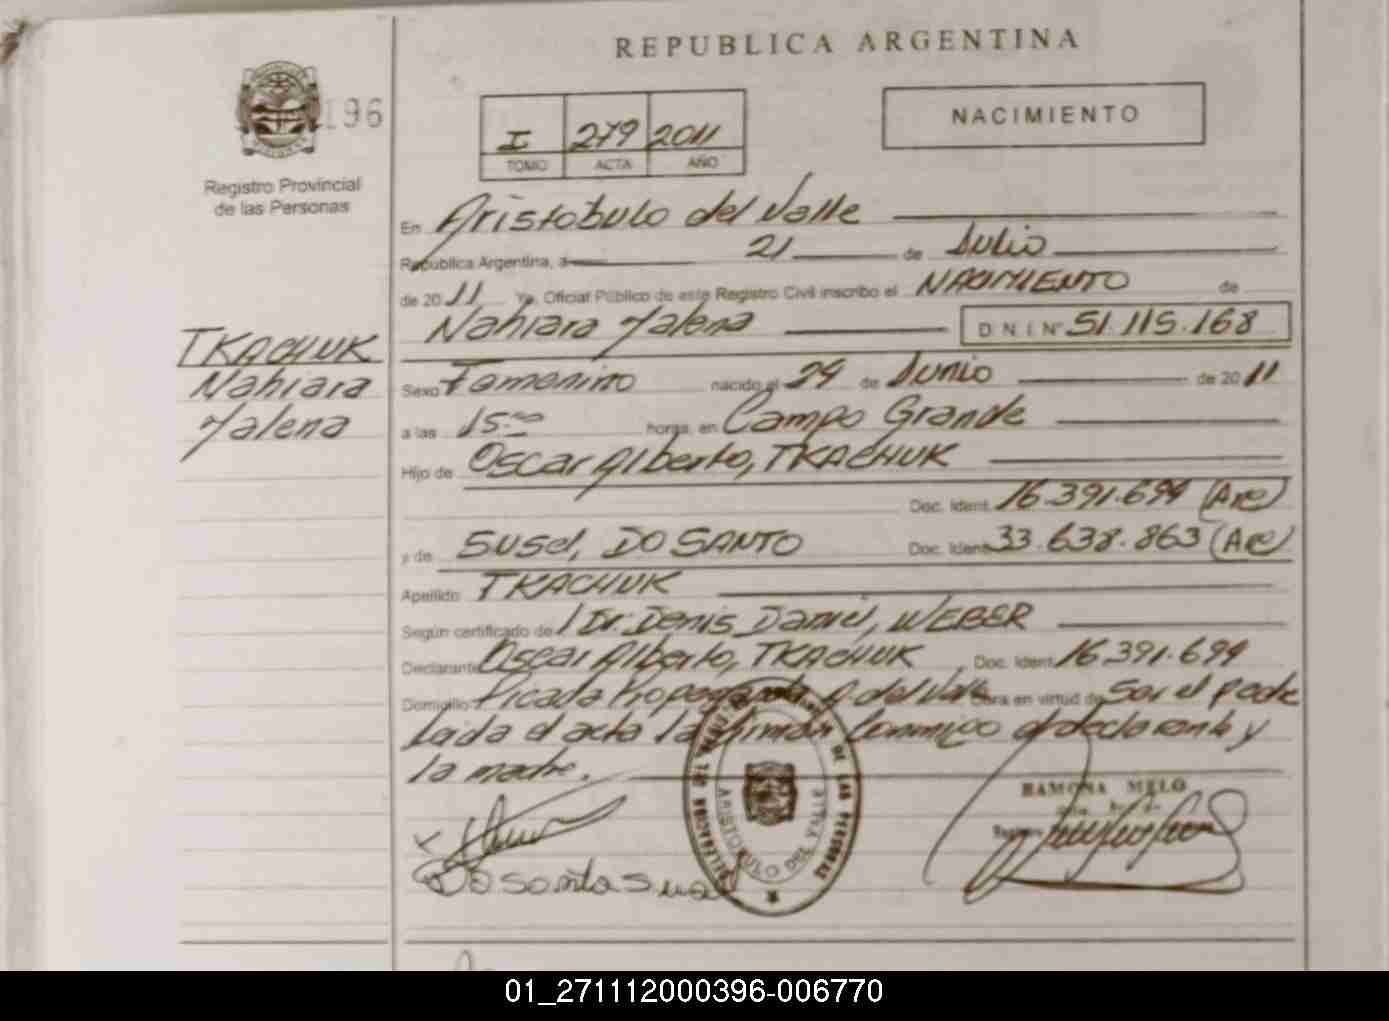 REPUBLICA ARGENTINA
196
Registro Provincial
de las Personas
I 279 2011
TOMO ACTA AÑO
NACIMIENTO
En Aristobulo del Valle
República Argentina, a 21 de Julio
de 2011 Yo, Oficial Público de este Registro Civil inscribo el NACIMIENTO de
Nahiara Yalena D N I Nº 51.115.168
TKACHUK
Nahiara
Yalena
Sexo Femenino nacido el 29 de Junio de 2011
a las 15:00 horas, en Campo Grande
Hijo de Oscar Alberto, TKACHUK
Doc. Ident. 16.391.694 (Arg)
y de Susel, DO SANTO Doc. Ident. 33.638.863 (Arg)
Apellido TKACHUK
Según certificado de Dr. Denis Daniel, WEBER
Declarante Oscar Alberto, TKACHUK Doc. Ident. 16.391.694
Domicilio Picada A. del Valle Obra en virtud de Ser el padre
Leida el acta la firman Conmigo el declarante y
la madre.
RAMONA MELO
DE LAS PERSONAS
ARISTOBULO DEL VALLE
01_271112000396-006770